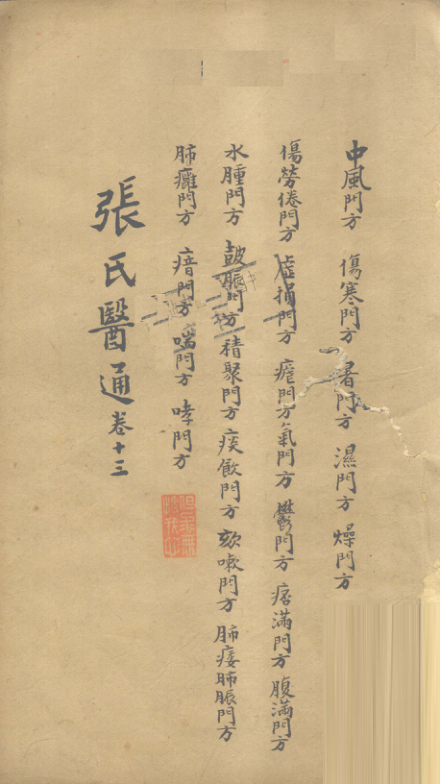 中風門方 傷寒門方 暑門方 濕門方 燥門方
傷勞倦門方 虛損門方 瘧門方 氣門方 鬱門方 痞滿門方 腹滿門方
水腫門方 鼓脹門方 積聚門方 痰飲門方 欬嗽門方 肺痿肺脹門方
肺癰門方 瘖門方 喘門方 哮門方
張氏醫通卷十三